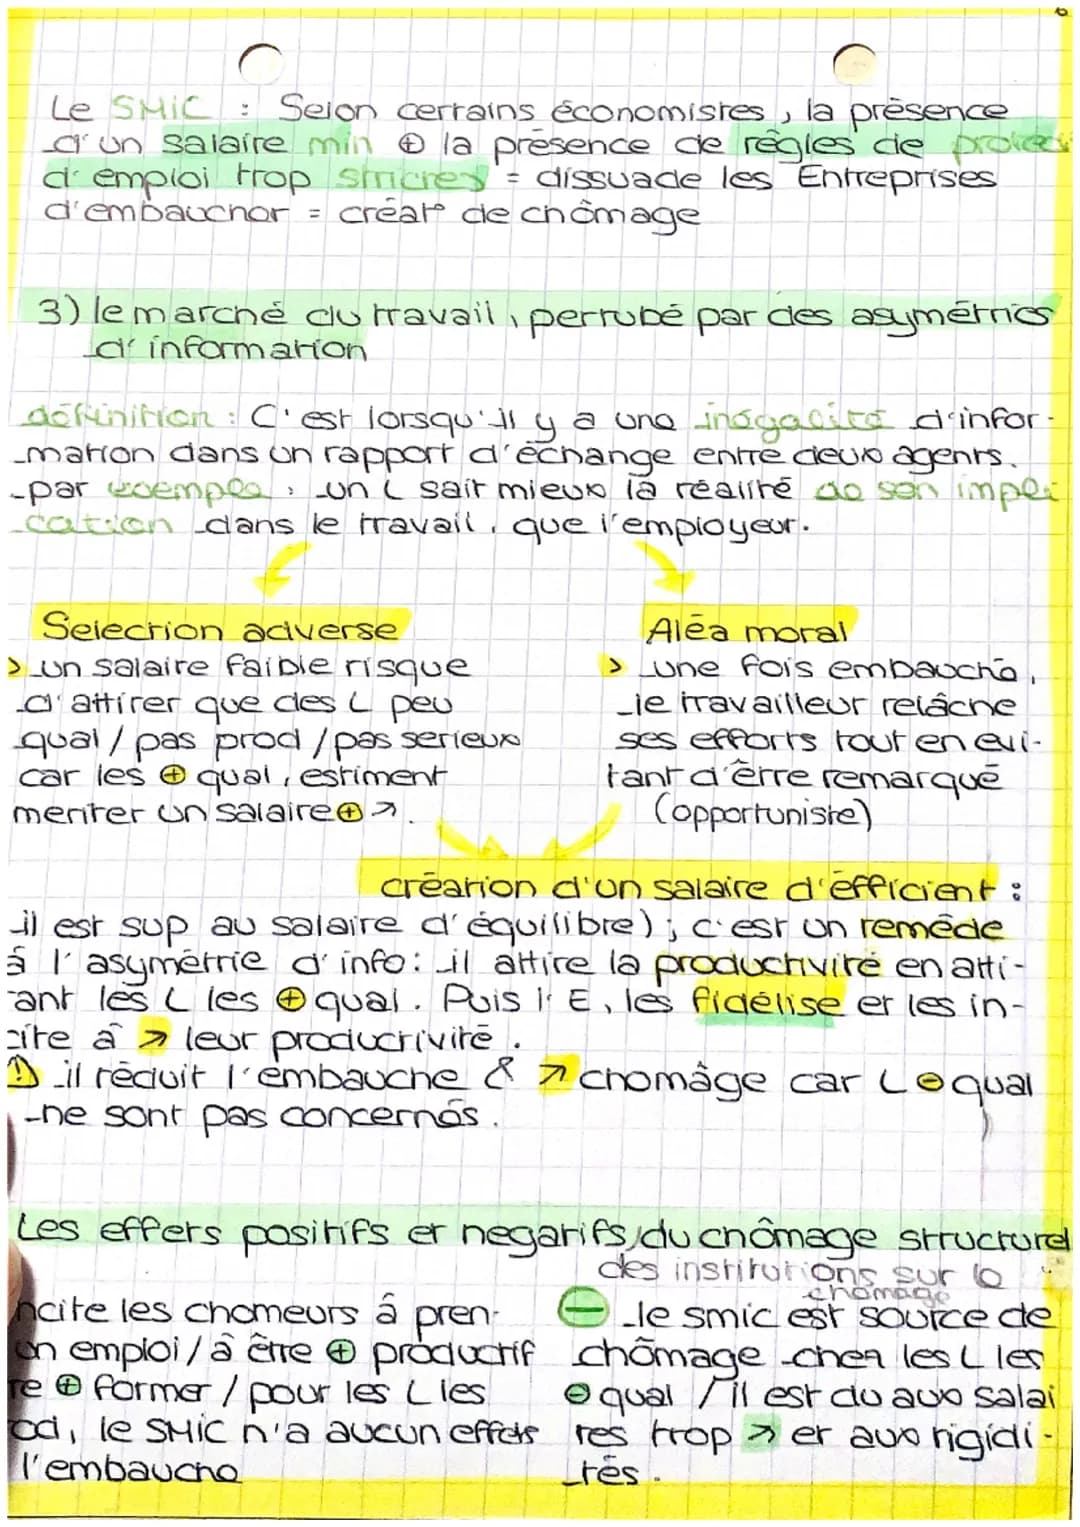 Le SMIC : Selon certains économistes, la présence
d'un salaire min ⊕ la présence de règles de protect
d'emploi trop strictes = dissuade les Entreprises
d'embaucher = créat° de chômage
3) le marché du travail, pertubé par des asymétries
d'information
définition : C'est lorsqu'il y a une inégalité d'infor-
mation dans un rapport d'échange entre deux agents.
par exemple : un L sait mieux la réalité de son impli
cation dans le travail, que l'employeur.
Selection adverse
> un salaire faible risque
d'attirer que des L peu
qual / pas prod / pas serieux
car les ⊕ qual, estiment
meriter un salaire ⊕ ↗.
Aléa moral
> une fois embauché,
le travailleur relâche
ses efforts tout en evi-
tant d'être remarqué
(opportuniste)
création d'un salaire d'éfficient :
il est sup au salaire d'équilibre) ; c'est un remède
à l'asymétrie d'info : il attire la productivité en atti-
rant les L les ⊕ qual. Puis l'E, les fidélise et les in-
cite à ↗ leur productivité.
⚠ il réduit l'embauche & ↗ chomâge car L ⊖ qual
ne sont pas concernés.
Les effets positifs et negatifs du chômage structurel
des institutions sur le
chômage
ncite les chomeurs à pren-
un emploi / à être ⊕ productif
re ⊕ former / pour les L les
od, le SMIC n'a aucun effets
l'embauche
⊖ le smic est source de
chômage chez les L les
⊖ qual / il est du aux salai
res trop ↗ et aux rigidi-
tés.